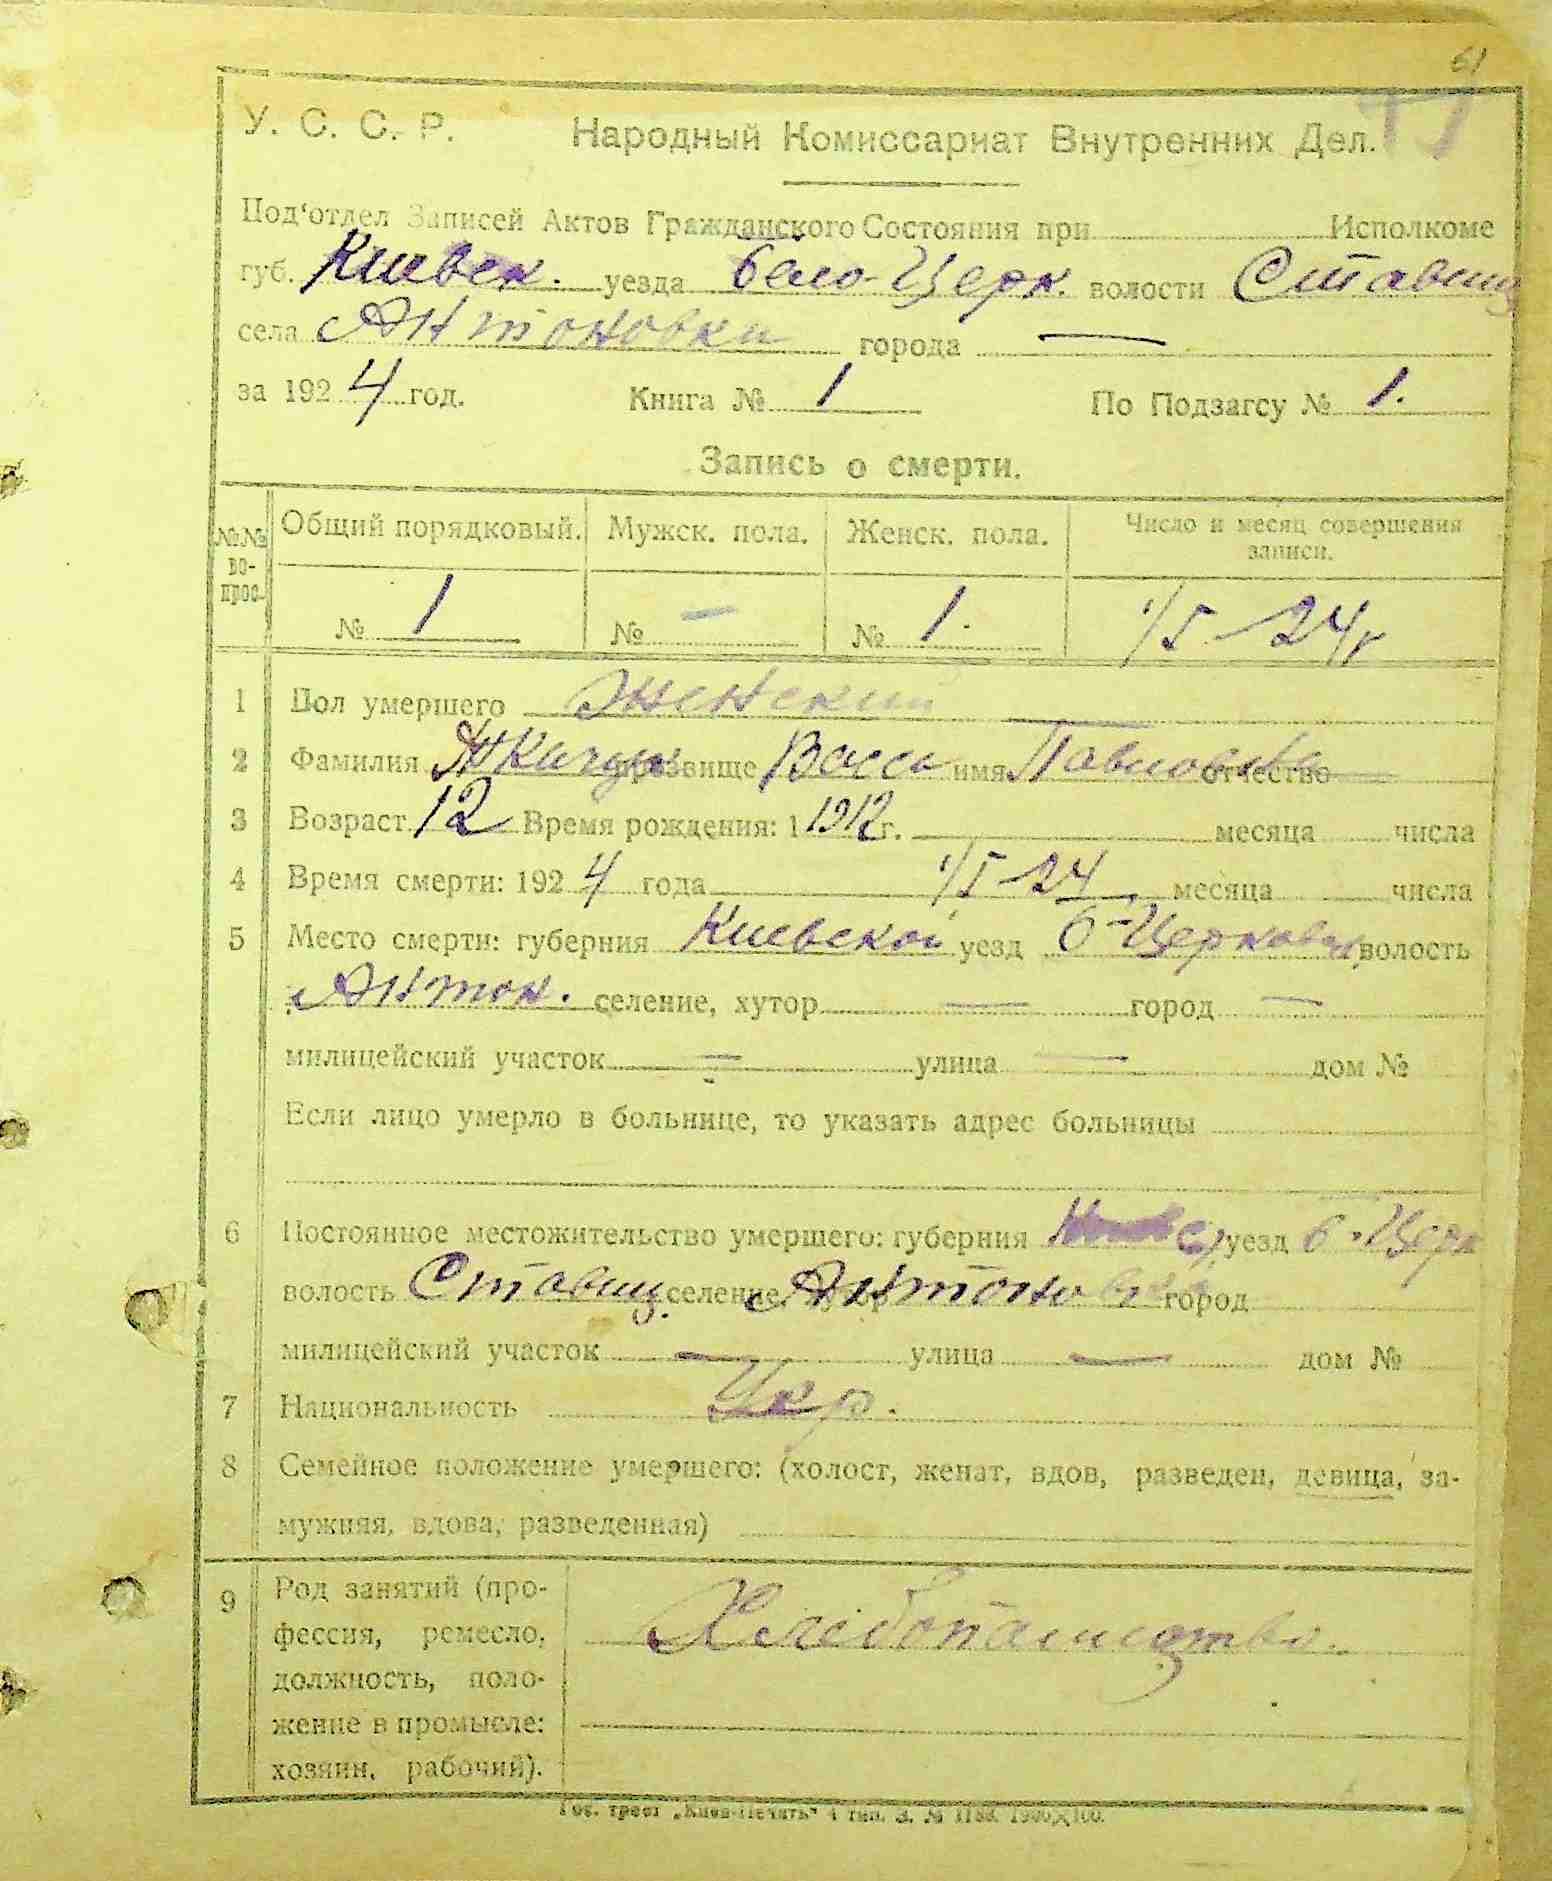 61
У. С. С. Р. Народный Комиссариат Внутренних Дел.
Под'отдел Записей Актов Гражданского Состояния при Исполкоме
губ. Киевск. уезда Бело-Церк. волости Ставищ
села Антоновки города —
за 1924 год. Книга № 1 По Подзагсу № 1.
Запись о смерти.
№№ вопрос. Общий порядковый. Мужск. пола. Женск. пола. Число и месяц совершения записи.
№ 1 № — № 1. 1/I-24г
1 Пол умершего Женский
2 Фамилия прозвище имя Павловна отчество
3 Возраст 12 Время рождения: 1 1912 г. месяца числа
4 Время смерти: 1924 года 1/I-24 месяца числа
5 Место смерти: губерния Киевской уезд Б-Церковск волость
Антон. селение, хутор — город —
милицейский участок — улица — дом №
Если лицо умерло в больнице, то указать адрес больницы
6 Постоянное местожительство умершего: губерния уезд Б-Церк
волость Ставищ. селение, хутор Антоновка город
милицейский участок — улица — дом №
7 Национальность Укр.
8 Семейное положение умершего: (холост, женат, вдов, разведен, девица, за-
мужняя, вдова, разведенная)
9 Род занятий (про-
фессия, ремесло, Хлебопашество.
должность, поло-
жение в промысле:
хозяин, рабочий).
Гос. трест „Киев-Печать" 4 тип. З. №